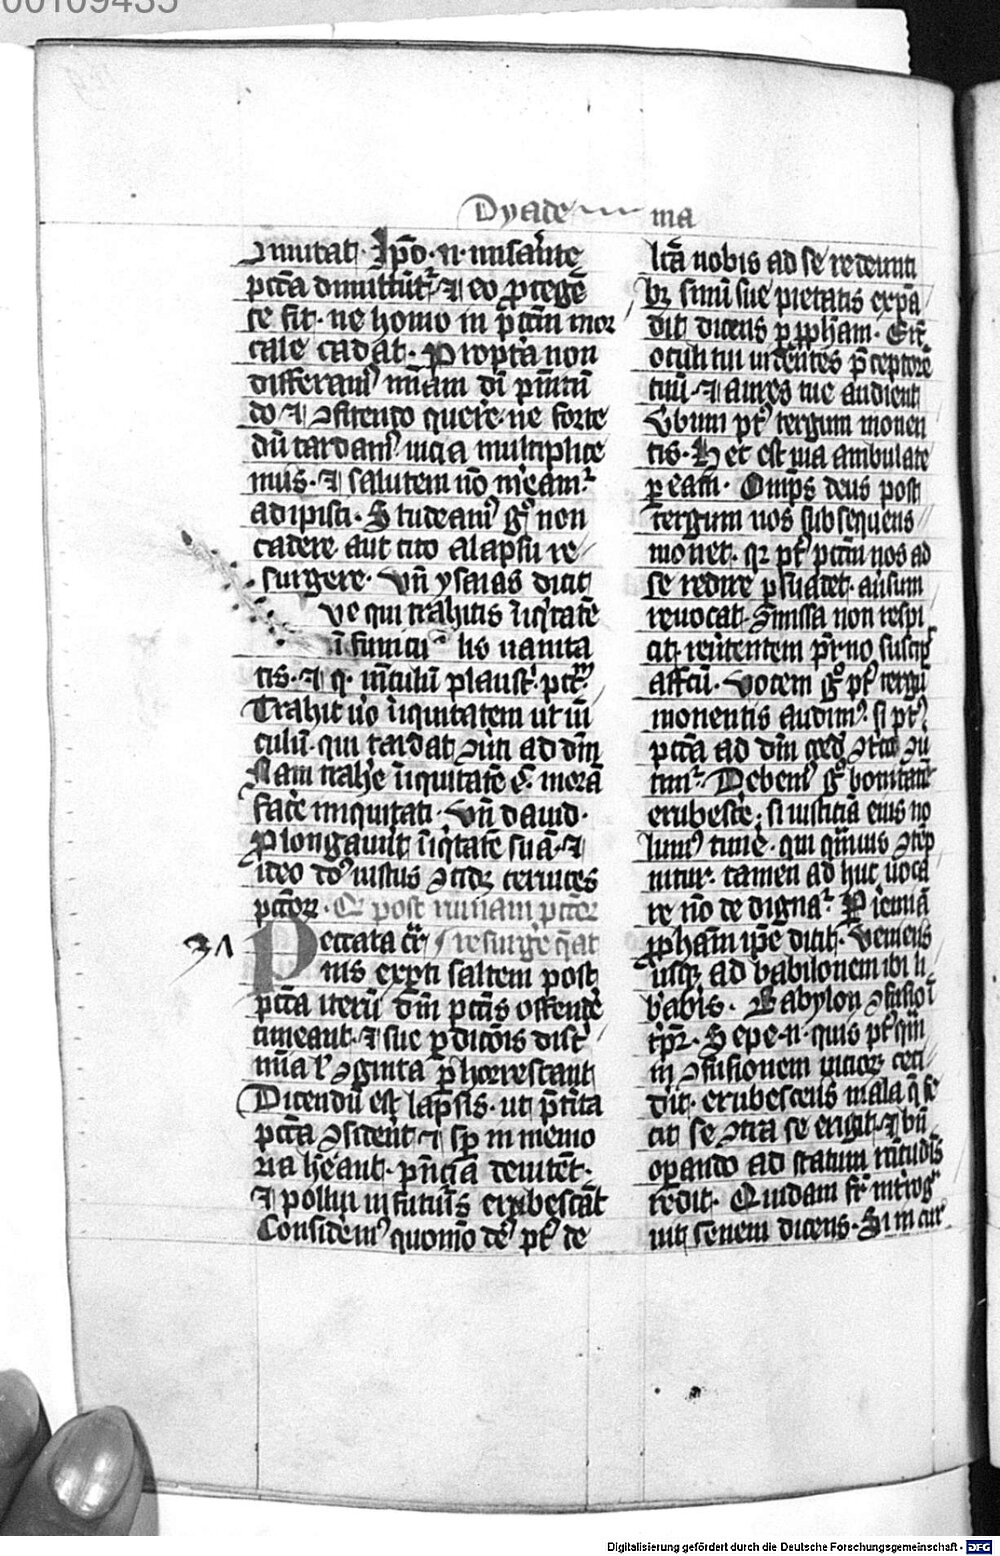 00109435
Dyade ma
inuitat. Ipo. n. miserante
pctа dimittutur. et eo protege
te fit. ne homo in pctm mor
tale cadat. Propta non
differam9 miam di pmitu
do et 9fitendo querere. ne forte
du tardam9 uicia multiplice
mus. et salutem no meamur
adipisci. Studeam9 g non
cadere aut cito a lapsu re
surgere. Vn ysaias dicit
ve qui trahitis iniqtate
in funicu lis uanita
tis. et q. uinculu plaustri pctm
Trahit uo iniquitatem ut uin
culu. qui tardat ad dm
Nam trahe iniquitate e. mora
facere iniquitati. Vn dauid.
Plongauit iniqtate sua. et
ideo do9 iustus 9cidet ceruices
pctor. Qr post ruinam pctor
31
Peccata cer resurge qat
nis expti saltem post
pcta iteru dm pctis offende
timeant. et sue pdicois disc
mina l 9gnita phorrescant
Dicendu est lapsis. ut ptita
pcta 9siderent et sp in memo
ria heant. pntia deuitet.
et pollui in futuris erubescat
Considem9 quomo de9 pt de
licta nobis ad se redeunti
bz sinu sue pietatis expa
dit dicens p ppham. Erut
oculi tui uidentes pceptore
tuu. et aures tue audient
Vbum pt tergum monen
tis. Hec est uia ambulate
p eam. Omps deus post
tergum uos subsequens
monet. qr pt pctm nos ad
se redire psuadet. ausum
reuocat. 9missa non respi
cit. reuertentem pno suscip
affcu. Vocem g pt tergu
monentis audim9. si pt
pcta ad dm 9uer
timur. Debem9 g bonitate
erubesce. si iusticia eius no
lum9 time. qui quis 9tep
nitur. tamen ad huc uoca
re no de dignar. P iemia
ppham ipe dicit. Venies
usq ad babilonem ibi li
baberis. Babylon 9fusio i
tpr. Sepe. n. quis pt qm
in 9fusionem uicior ceci
dit. erubescens mala q fe
cit se 9tra se erigit. et bn
opando ad statum rectitudis
redit. Quidam fr introg
uit senem dicens. Si in cur
Digitalisierung gefördert durch die Deutsche Forschungsgemeinschaft - DFG